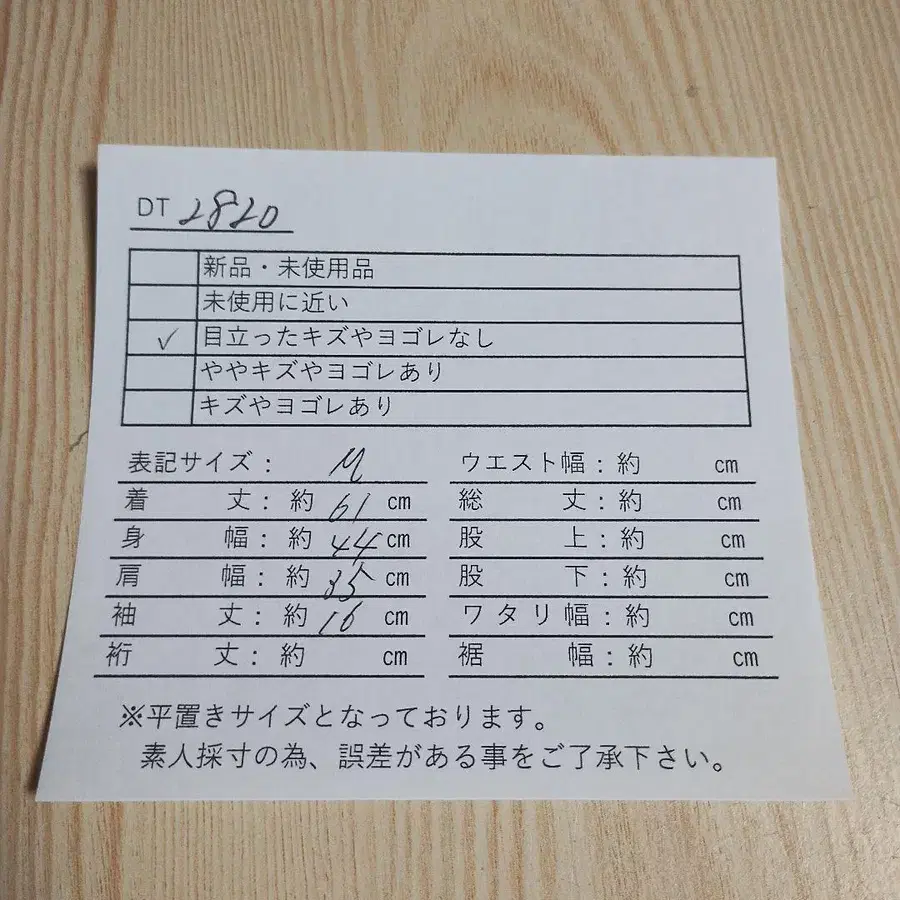 DT 2820
新品・未使用品
未使用に近い
✓ 目立ったキズやヨゴレなし
ややキズやヨゴレあり
キズやヨゴレあり
表記サイズ： M
着丈：約 61 cm
身幅：約 44 cm
肩幅：約 35 cm
袖丈：約 16 cm
裄丈：約 cm
ウエスト幅：約 cm
総丈：約 cm
股上：約 cm
股下：約 cm
ワタリ幅：約 cm
裾幅：約 cm
※平置きサイズとなっております。
素人採寸の為、誤差がある事をご了承下さい。